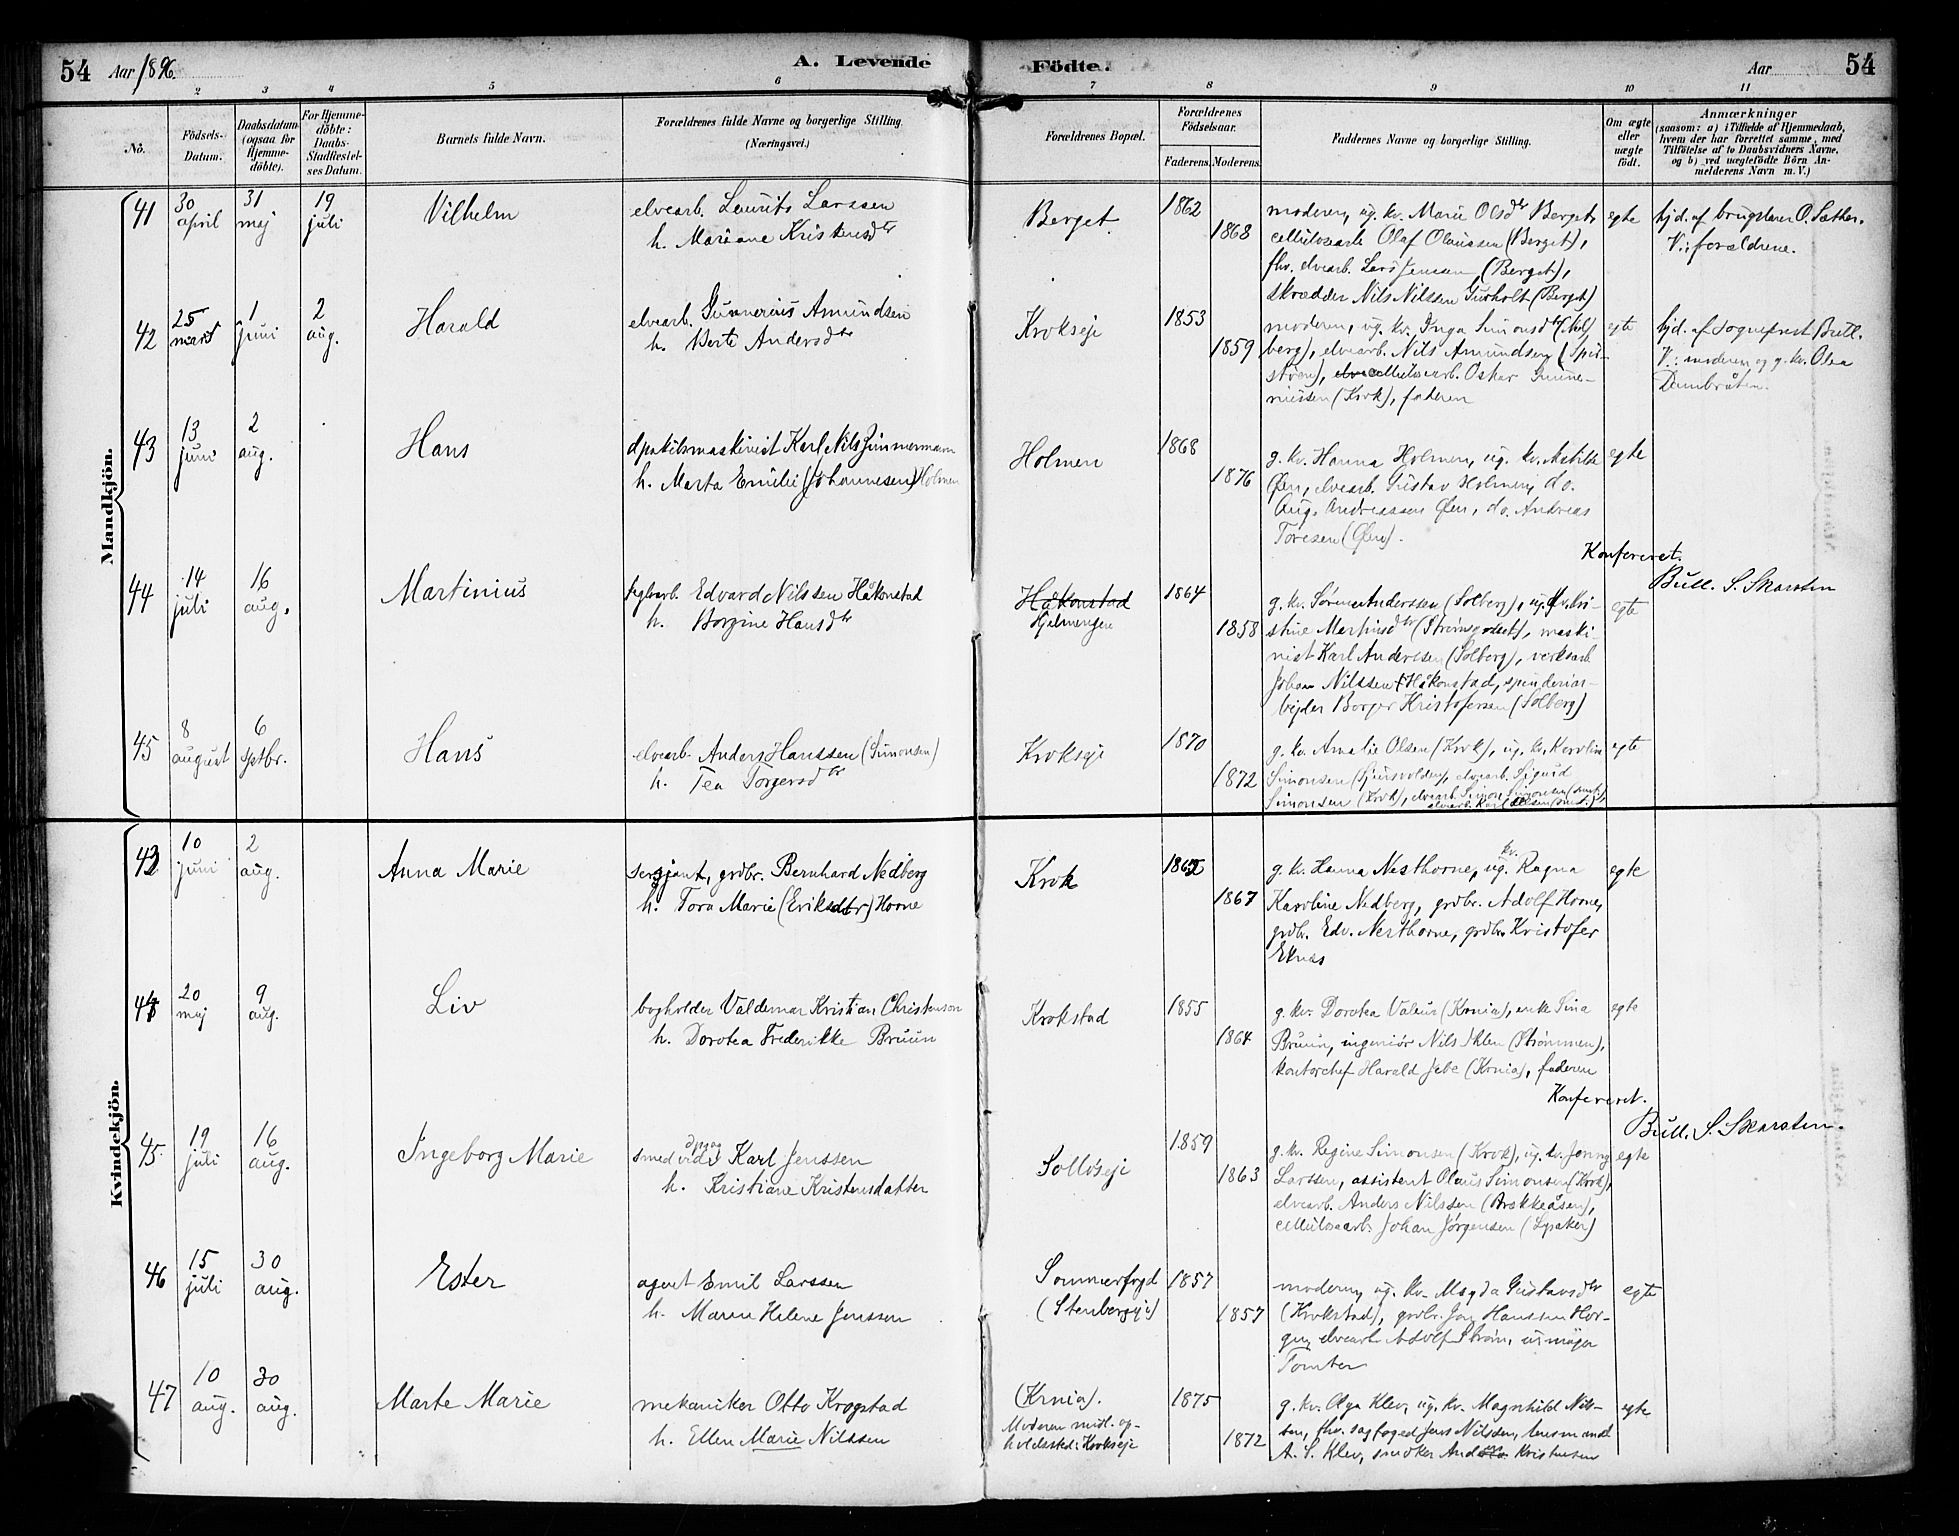 54 Aar 1896
A. Levende
Födte.
Aar
54
2 3 4 5 6 7 8 9 10 11
No.
Födsels-
Datum.
Daabsdatum
(ogsaa for
Hjemme-
döbte).
For Hjemme-
döbte:
Daabs-
Stadfæstel-
ses Datum.
Barnets fulde Navn.
Forældrenes fulde Navne og borgerlige Stilling.
(Næringsvei.)
Forældrenes Bopæl.
Forældrenes
Födselsaar.
Faderens.
Moderens.
Faddernes Navne og borgerlige Stilling.
Om ægte
eller
uægte
födt.
Anmærkninger
(saasom: a) i Tilfælde af Hjemmedaab,
hvem der har forrettet samme, med
Tilföielse af to Daabsvidners Navne,
og b) ved uægtefödte Börn An-
melderens Navn m. V.)
Mandkjön.
41
30
april
31
maj
19
juli
Vilhelm
elvearb. Laurits Larssen
h. Mariane Kristensdtr
Berget.
1862
1868
moderen, ug. kv. Marie Olsdtr Berget,
cellulosearb Olaf Olaussen (Berget),
fhv. elvearb. Lars Jenssen (Berget),
skrædder Nils Nilssen Gurholt (Berget)
egte
hjd. af brugslærer O. Sæther.
V.: forældrene.
42
25
mars
1
juni
2
aug.
Harald
elvearb. Gunnerius Amundsen
h. Berte Andersdtr
Krokseje
1853
1859
moderen, ug. kv. Inga Simonsdtr (Sol
berg), elvearb. Nils Amundsen
cellulosearb. Oskar Gunne-
riussen (Krok), faderen
egte
hjd. af sogneprest Bull.
V.: moderen og g. kv. Olea
Dambråten.
43
13
juni
2
aug.
Hans
dpskibsmaskinist Karl Nils Zimmermann
h. Marta Emilie (Johannesen) Holmen
Holmen
1868
1876
g. kv. Hanna Holmen, ug. kv. Mathilde
Øen, elvearb. Gustav Holmen, do.
Aug. Andreassen Øen, do. Andreas
Toresen (Øen).
egte
Konfereret.
Bull. S. Skarsten
44
14
juli
16
aug.
Martinius
teglarb. Edvard Nilssen Håkonstad
h. Borgine Hansdtr
Håkonstad
Hjelmengen
1864
1858
g. kv. Sørine Anderssen (Solberg), ug. kv. Kri-
stine Martinsdtr, maski-
nist Karl Anderssen (Solberg), verksarb
Johan Nilssen Håkonstad, spinderiar-
bejder Borger Kristofersen (Solberg)
egte
45
8
august
6
sptbr.
Hans
elvearb. Anders Hanssen (Simonsen)
h. Tea Torgersdtr
Krokseje
1870
1872
g. kv. Amalie Olsen (Krok), ug. kv. Karolin
Simonsen, elvearb. Sigurd
Simonsen (Krok), elvearb. Simon Simonsen
elvearb. Karl Olsen
egte
Kvindekjön.
43
10
juni
2
aug.
Anna Marie
sersjant, grdbr. Bernhard Nedberg
h. Tora Marie (Eriksdtr) Horne
Krok
1865
1867
g. kv. Hanna Nesthorne, ug. kv. Ragna
Karoline Nedberg, grdbr. Adolf Horne,
grdbr. Edv. Nesthorne, grdbr. Kristofer
Eknes
egte
44
20
maj
9
aug.
Liv
bogholder Valdemar Kristian Christenson
h. Dorotea Frederikke Bruun
Krokstad
1855
1864
g. kv. Dorotea Valeur (Krnia), enke Sina
Bruun, ingeniør Nils Ihlen (Strømmen),
kontorchef Harald Jebe (Krnia), faderen
egte
Konfereret.
Bull. S. Skarsten.
45
19
juli
16
aug.
Ingeborg Marie
smed Karl Jenssen
h. Kristiane Kristensdatter
Solløseje
1859
1863
g. kv. Regine Simonsen (Krok), ug. kv. Jenny
Larssen, assistent Olaus Simonsen (Krok),
elvearb. Anders Nilssen (Brækkeåsen),
cellulosearb. Johan Jørgensen (Lysaker)
egte
46
15
juli
30
aug.
Ester
agent Emil Larssen
h. Maren Helene Jenssen
Sommerfryd
(Stenbergeje)
1857
1857
moderen, ug. kv. Magda Gustavsdtr
(Krokstad), grdbr. Jon Hanssen Hor-
gen, elvearb Adolf Strøm,
Tomter
egte
47
10
aug.
30
aug.
Marte Marie
mekaniker Otto Krogstad
h. Ellen Marie Nilssen
(Krnia).
Moderen midl. op-
holdssted: Krokseje
1875
1872
g. kv. Olga Klev, ug. kv. Magnhild Nils-
sen, fhv. sagfoged Jens Nilssen, lensmand
A. S. Klev, snedker Kristensen
egte